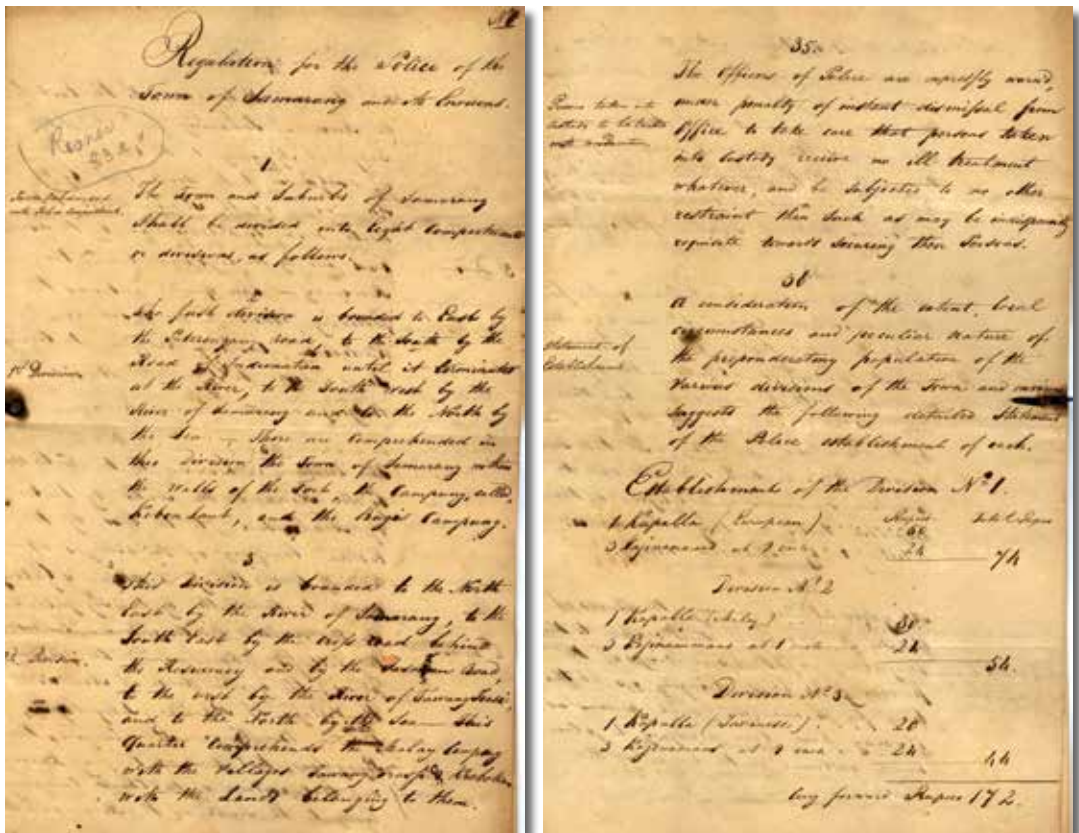 Regulation for the Police of the
Town of Samarang and its Environs.
1.
The Town and Suburbs of Samarang
Shall be divided into Eight Compartments
or divisions, as follows.
1st Division
The first division is bounded to East by
the road, to the South by the
Road of until it terminates
at the River, to the South West by the
River of Samarang and to the North by
the Sea — There are Comprehended in
this division the Town of Samarang within
the Walls of the the Campung called
and the Campung.
3
This Division is bounded to the North
East by the River of Samarang, to the
South East by the Cross road behind
the Residency and by the Road,
to the West by the River of
and to the North by the Sea — This
Quarter Comprehends the Malay Campung
with the Villages
with the Lands belonging to them.
35.
The Officers of Police are expressly warned,
under penalty of instant dismissal from
Office to take care that persons taken
into Custody receive no ill treatment
whatever, and be subjected to no other
restraint than such as may be indispensably
requisite towards securing their Persons.
36
Statement of
Establishment
A consideration of the extent, local
circumstances and peculiar nature of
the preponderating population of the
various divisions of the Town and
suggests the following detailed Statement
of the Police establishment of each.
Establishment of the Division No. 1.
1 Kapalla (European) Rupees
3 at 8 each 24
74
Division No. 2
1 Kapalla (Malay) 30
3 at 8 each 24
54.
Division No. 3
1 Kapalla (Javanese) 20
3 at 8 each 24
44
forward Rupees 172.